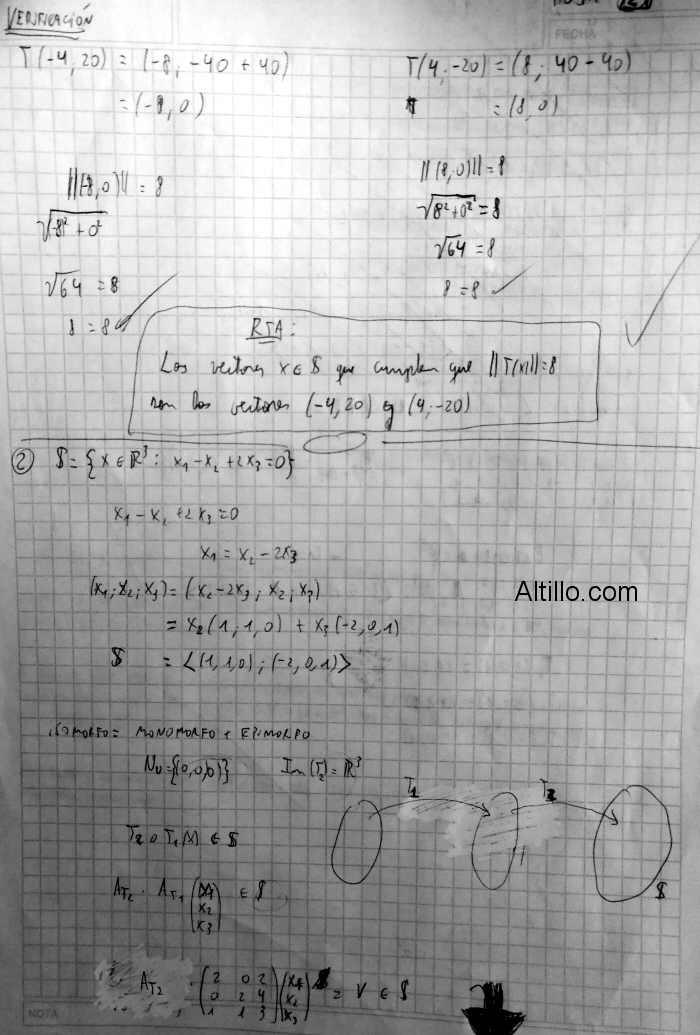 VERIFICACIÓN
FECHA
T(-4, 20) = (-8; -40 + 40)
= (-8, 0)
||(-8,0)|| = 8
√-8² + 0²
√64 = 8
8 = 8
T(4; -20) = (8; 40 - 40)
= (8, 0)
||(8,0)|| = 8
√8² + 0² = 8
√64 = 8
8 = 8
RTA:
Los vectores x ∈ S que cumplen que ||T(x)|| = 8
son los vectores (-4, 20) y (4; -20)
② S = {x ∈ ℝ³ : x₁ - x₂ + 2x₃ = 0}
x₁ - x₂ + 2x₃ = 0
x₁ = x₂ - 2x₃
(x₁; x₂; x₃) = (x₂ - 2x₃; x₂; x₃)
= x₂(1; 1, 0) + x₃(-2, 0, 1)
S = <(1, 1, 0); (-2, 0, 1)>
Altillo.com
ISOMORFO = MONOMORFO + EPIMORFO
Nu = {(0,0,0)} Im(T₂) = ℝ³
T₁ T₂
T₂ o T₁(x) ∈ S
S
A_T₂ · A_T₁ (x₁ x₂ x₃) ∈ S
A_T₂ · (2 0 2
0 2 4
1 1 3) (x₁ x₂ x₃) = V ∈ S
NOTA